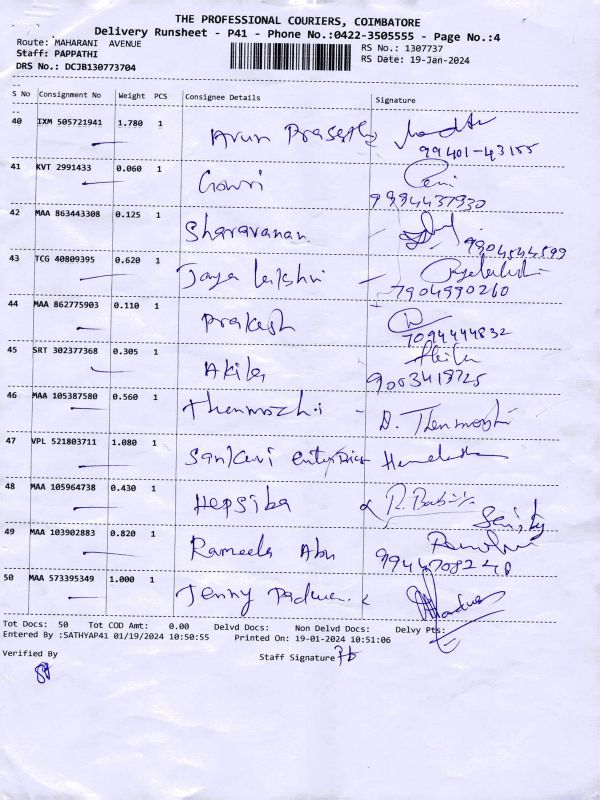 THE PROFESSIONAL COURIERS, COIMBATORE
Delivery Runsheet - P41 - Phone No.:0422-3505555 - Page No.:4
Route: MAHARANI AVENUE
RS No.: 1307737
Staff: PAPPATHI
RS Date: 19-Jan-2024
DRS No.: DCJB130773704
S No Consignment No Weight PCS Consignee Details Signature
40 IXM 505721941 1.780 1
Arun
99401-43155
41 KVT 2991433 0.060 1
Gowri
9994437930
42 MAA 863443308 0.125 1
Sharavanan
9904544599
43 TCG 40809395 0.620 1
Jaya
7904990260
44 MAA 862775903 0.110 1
Prakash
7094444832
45 SRT 302377368 0.305 1
Akila
9003418725
46 MAA 105387580 0.560 1
Thenmozhi - D. Thenmozhi
47 VPL 521803711 1.080 1
Enterprises
48 MAA 105964738 0.430 1
Hepsiba
49 MAA 103902883 0.820 1
Rameela
9944708240
50 MAA 573395349 1.000 1
Jenny
Tot Docs: 50 Tot COD Amt: 0.00 Delvd Docs: Non Delvd Docs: Delvy Pts:
Entered By :SATHYAP41 01/19/2024 10:50:55 Printed On: 19-01-2024 10:51:06
Verified By Staff Signature